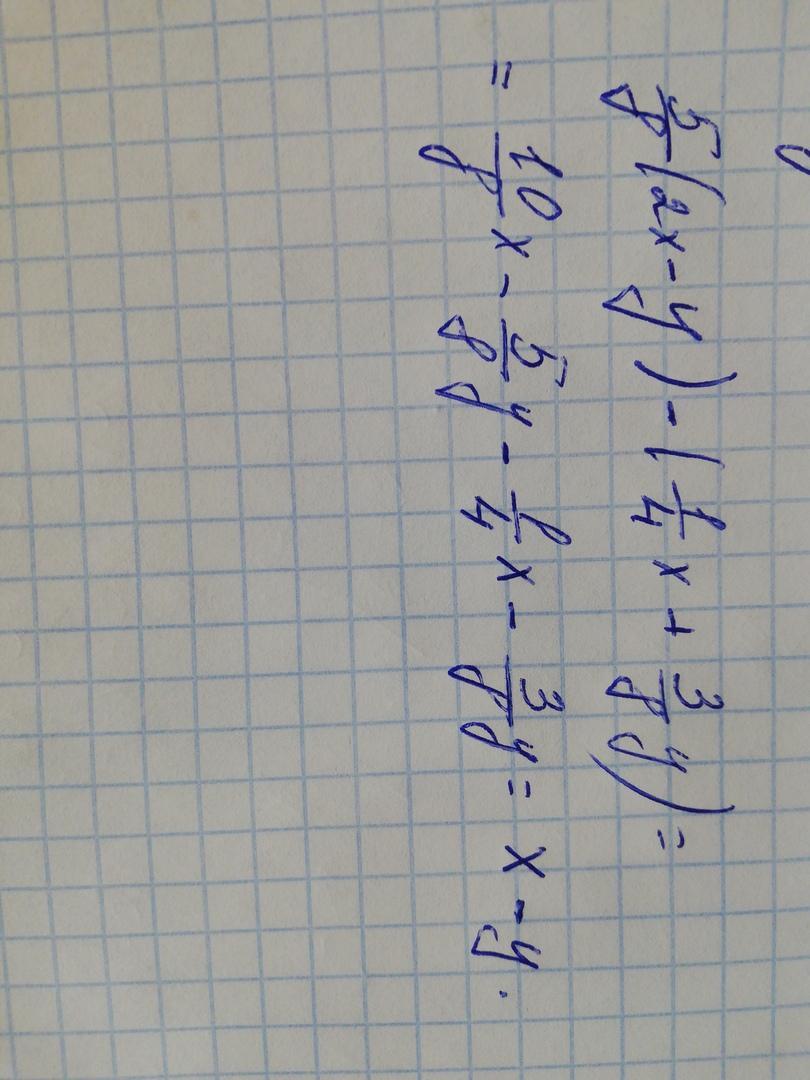 5/8(2x-y)-(1/4x+3/8y)=
=10/8x-5/8y-1/4x-3/8y=x-y.